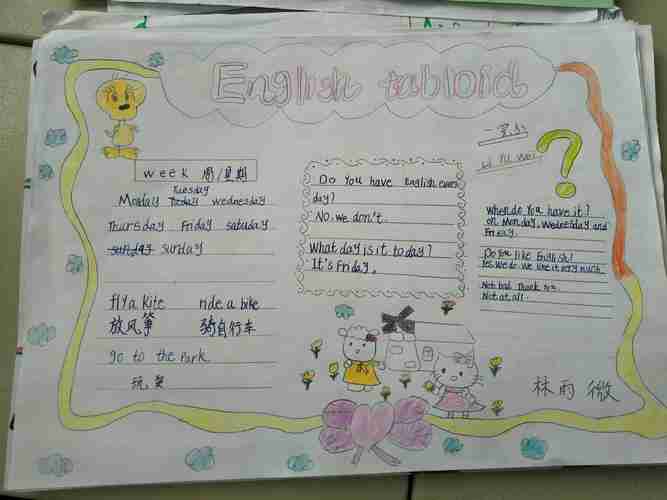 English tabloid
week 周/星期
Tuesday
Monday Tusday wednesday
Thursday Friday satuday
sunday surday
fly a kite ride a bike
放风筝 骑自行车
go to the park
Do you have English every
day?
No, we don't.
What day is it today?
It's Friday.
When do you have it?
on Monday, Wednesday and
Friday.
Do you like English?
Yes we do. we like it very much
Not bad, thank
Not at all.
林雨微